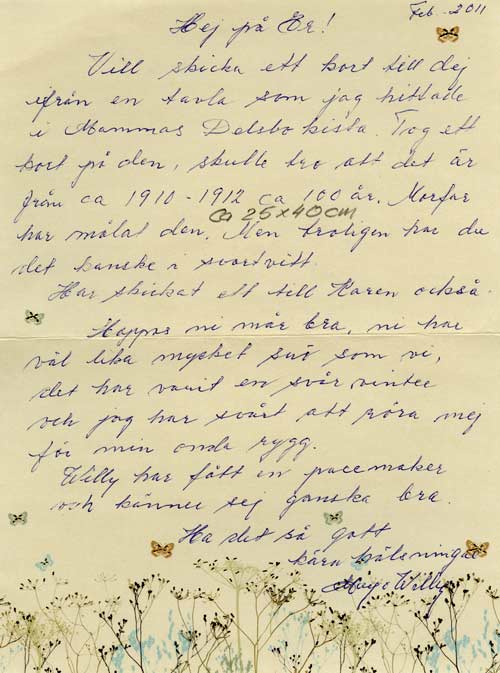 Feb. 2011
Hej på Er!
Vill skicka ett kort till dej
ifrån en tavla som jag hittade
i Mammas Delsbo kista. Tog ett
kort på den, skulle tro att det är
från ca 1910 - 1912 ca 100 år. Morfar
ca 25 x 40 cm
har målat den. Men troligen har du
det kanske i svartvitt.
Har skickat ett till Karen också.
Hoppas ni mår bra, ni har
väl lika mycket snö som vi,
det har varit en svår vinter
och jag har svårt att röra mej
för min onda rygg.
Willy har fått en pacemaker
och känner sej ganska bra.
Ha det så gott
kära hälsningar
Willy